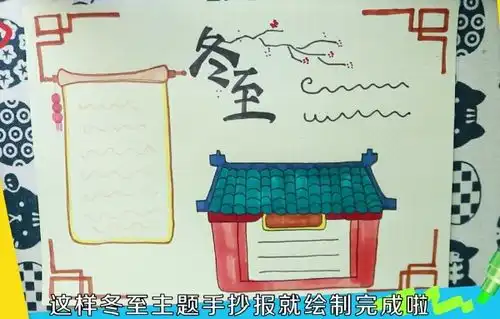 冬至
这样冬至主题手抄报就绘制完成啦